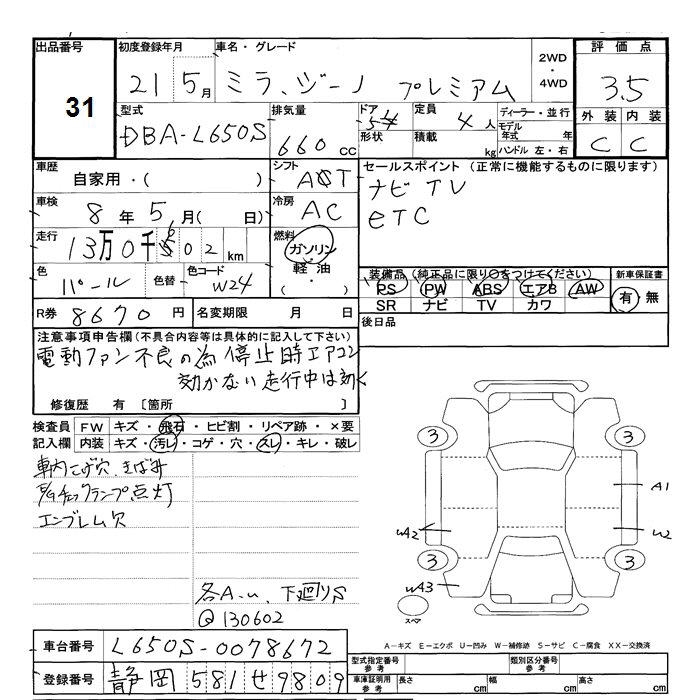 出品番号 31
初度登録年月 21 5月
車名・グレード ミラ、ジーノ プレミアム
2WD・4WD
評価点 3.5
外装 C 内装 C
型式 DBA-L650S
排気量 660cc
ドア形状 5
定員 4人
積載 kg
ディーラー・並行
モデル年式 年
ハンドル 左・右
車歴 自家用・( )
シフト AT
セールスポイント(正常に機能するものに限ります)
ナビ TV
ETC
車検 8年5月( 日)
冷房 AC
走行 13万0千602km
燃料 ガソリン・軽油( ・ )
色 パール 色替 色コード W24
装備品(純正品に限り○をつけてください)
PS PW ABS エアB AW
SR ナビ TV カワ
新車保証書 有・無
R券 8670円
名変期限 月 日
後日品
注意事項申告欄(不具合内容等は具体的に記入して下さい)
電動ファン不良の為停止時エアコン
効かない走行中は効く
修復歴 有 [箇所 ]
検査員 FW キズ・飛石・ヒビ割・リペア跡・×要
記入欄 内装 キズ・汚レ・コゲ・穴・スレ・キレ・破レ
車内こげ穴、きばみ
E/Gチェックランプ点灯
エンブレム欠
各A、u、下廻りS
Q130602
3 3
A1
W2 W2
3 3
W3
スペア
A-キズ E-エクボ U-凹み W-補修跡 S-サビ C-腐食 XX-交換済
車台番号 L650S-0078672
型式指定番号 参考
類別区分番号 参考
登録番号 静岡 581 せ 9809
車庫証明用 参考 長さ cm 幅 cm 高さ cm